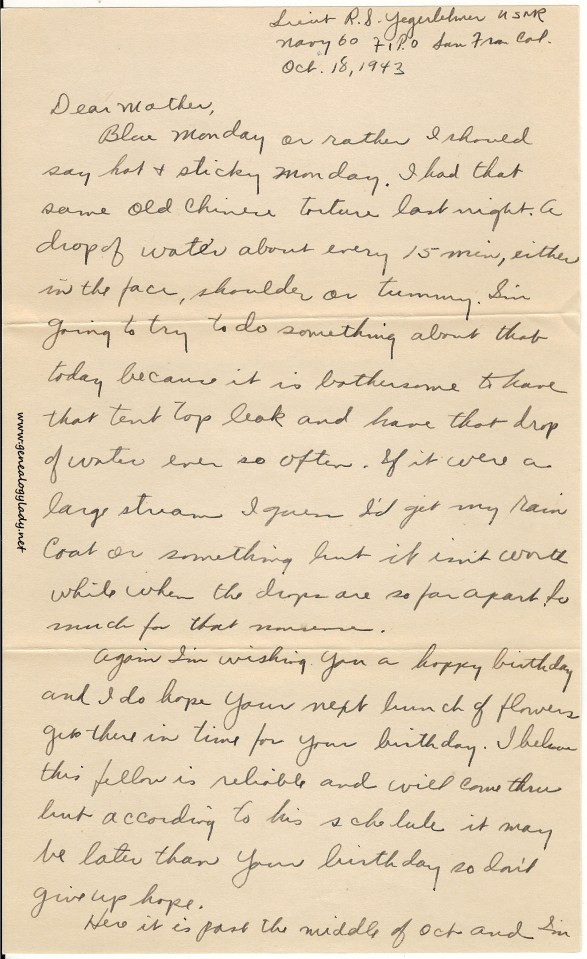 Lieut R.S. Yegerlehner USNR
Navy 60 F.P.O San Fran Cal.
Oct. 18, 1943
Dear Mother,
Blue Monday or rather I should
say hot & sticky Monday. I had that
same old Chinese torture last night. A
drop of water about every 15 min, either
in the face, shoulder or tummy. I'm
going to try to do something about that
today because it is bothersome to have
that tent top leak and have that drop
of water ever so often. If it were a
large stream I guess I'd get my rain
coat or something but it isn't worth
while when the drops are so far apart. So
much for that nonsense.
Again I'm wishing you a happy birthday
and I do hope your next bunch of flowers
gets there in time for your birthday. I believe
this fellow is reliable and will come thru
but according to his schedule it may
be later than your birthday so don't
give up hope.
Here it is past the middle of Oct and I'm
www.genealogylady.net